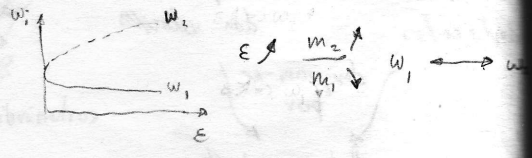 ωᵢ
ω₂
ω₁
ε
ε ↗ m₂ ↗ / m₁ ↘ ω₁ ↔